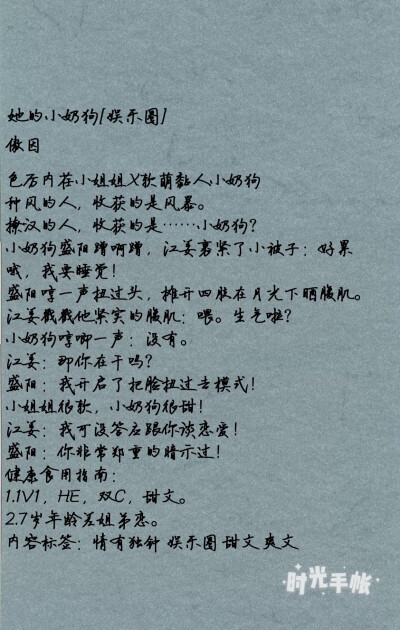 她的小奶狗[娱乐圈]
傲因
色厉内荏小姐姐X软萌黏人小奶狗
种风的人，收获的是风暴。
撩汉的人，收获的是……小奶狗？
小奶狗盛阳蹭啊蹭，江姜裹紧了小被子：好累
哦，我要睡觉！
盛阳哼一声扭过头，摊开四肢在月光下晒腹肌。
江姜戳戳他紧实的腹肌：喂。生气啦？
小奶狗哼唧一声：没有。
江姜：那你在干吗？
盛阳：我开启了把脸扭过去模式！
小姐姐很软，小奶狗很甜！
江姜：我可没答应跟你谈恋爱！
盛阳：你非常郑重的暗示过！
健康食用指南：
1.1V1，HE，双C，甜文。
2.7岁年龄差姐弟恋。
内容标签：情有独钟 娱乐圈 甜文 爽文
时光手帐